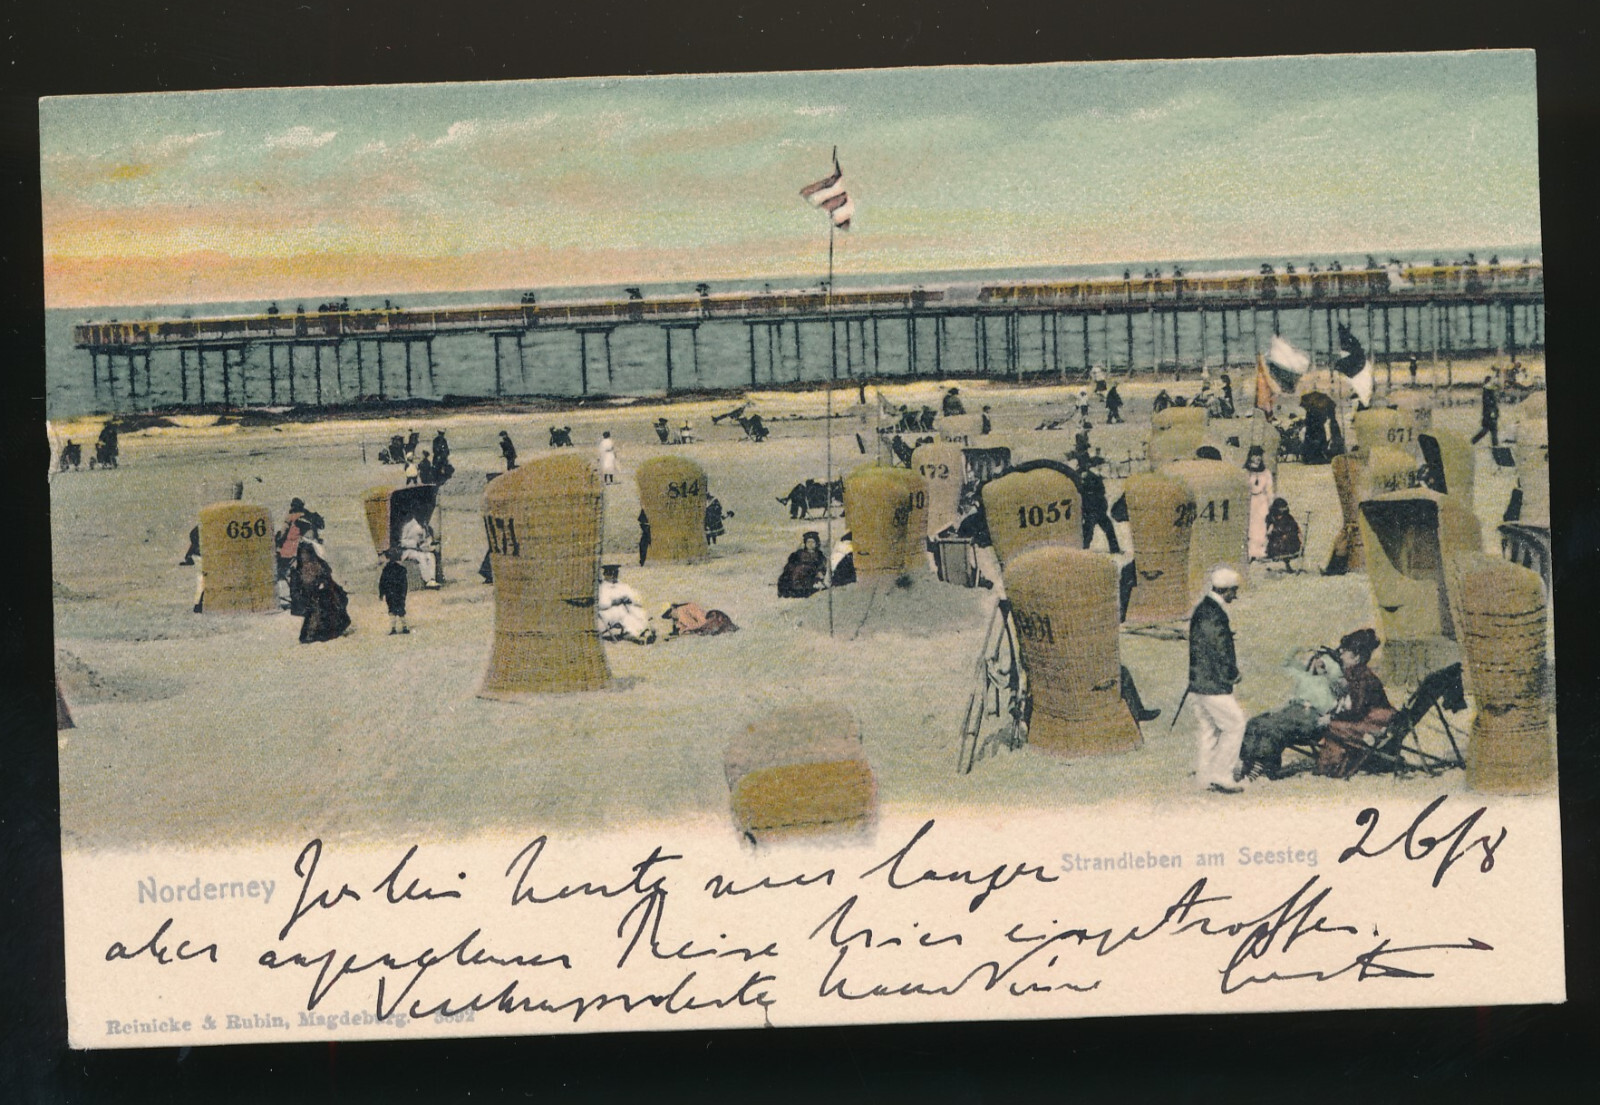 656
171
814
672
10
1057
2141
671
901
Norderney
Strandleben am Seesteg
26/8
Ich bin heute nach langer
aber angenehmer Reise hier eingetroffen.
Reinicke & Rubin, Magdeburg.